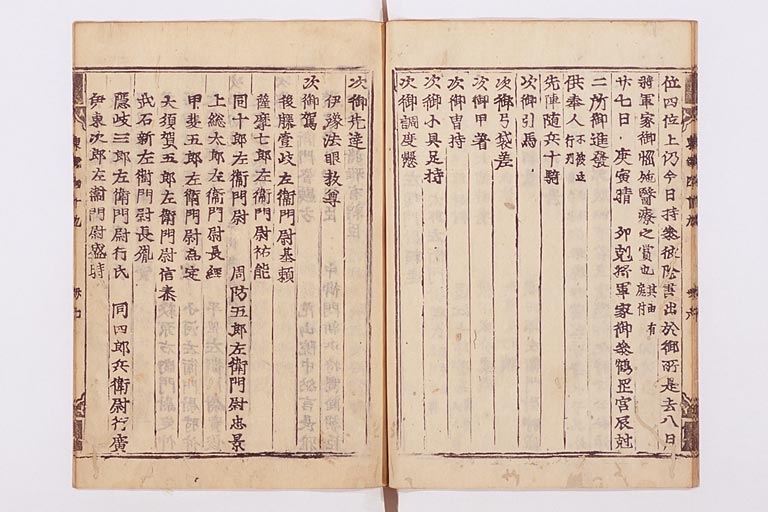 位四位上仍今日持参彼除書出於御所是去八日
将軍家御惱施醫療之賞也其由有庭付
廿七日庚寅晴卯剋将軍家御参鶴岡宮辰剋
二所御進發
供奉人不按位行列
先陣随兵十騎
次御引馬
次御弓袋差
次御甲着
次御冑持
次御小具足持
次御調度懸
次御先達
伊豫法眼救尊
次御駕
後藤壹岐左衛門尉基頼
薩摩七郎左衛門尉祐能
同十郎左衛門尉 周防五郎左衛門尉忠景
上総太郎左衛門尉長經
甲斐五郎左衛門尉為定
大須賀五郎左衛門尉信泰
武石新左衛門尉長胤
隠岐三郎左衛門尉行氏 同四郎兵衛尉行廣
伊東次郎左衛門尉盛時